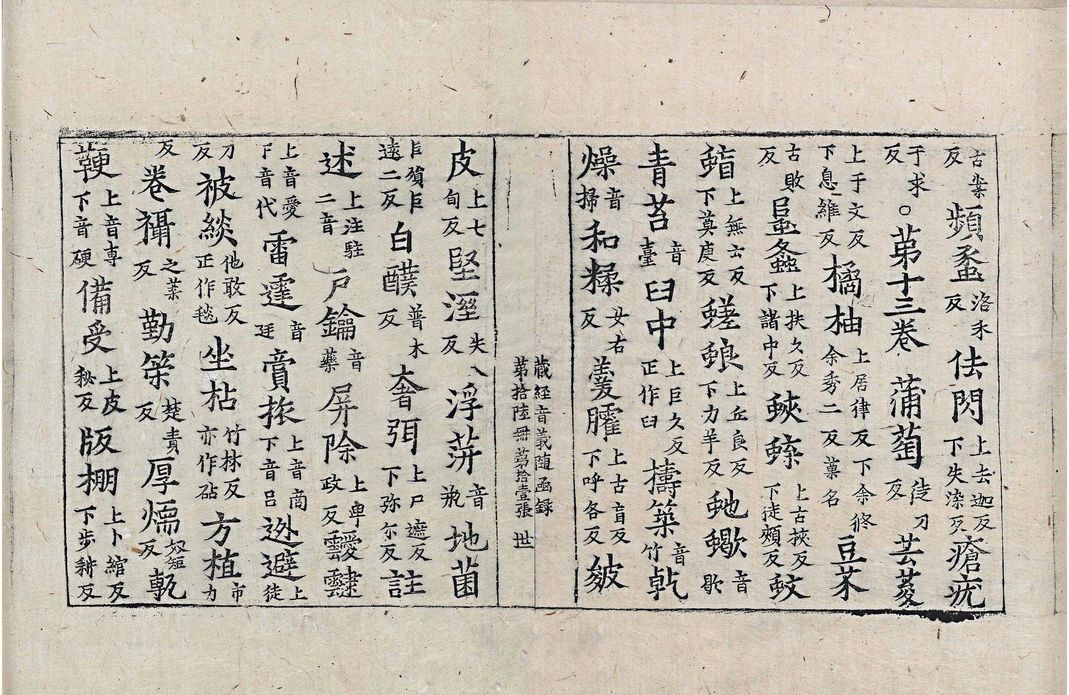 古業反 頻蝨 洛禾反 佉閃 上去迦反下失染反 瘡疣
于求反 ○第十三卷 蒲萄 徒刀反 芸荽
上于文反下息維反 橘柚 上居律反下余終余秀二反菓名 豆䒩
古敗反 上扶久反下諸中反 蛺蝶 上古挾反下徒頰反 蚊
上無云反下莫庚反 蜣蜋 上丘良反下力羊反 虵蠍 音歇
青苔 音臺 臼中 上巨久反正作臼 擣築 音竹 乹
燥 音掃 和糅 女右反 羹臛 上古盲反下呼各反 皴
藏經音義隨函録 第拾陸冊 第拾壹張 世
皮 上七旬反 堅溼 失入反 浮蓱 音瓶 地菌
巨殞巨遠二反 白醭 普木反 奢弭 上尸遮反下弥尒反 註
述 上注駐二音 戶鑰 音藥 屏除 上卑政反 靉靆
上音愛下音代 雷霆 音廷 賣旅 上音商下音呂 迯避 上徒
刀反 被緂 他敢反正作毯 坐枯 竹林反亦作砧 方植 市力
反 卷襵 之業反 勤策 楚責反 厚煗 奴短反 乹
鞕 上音專下音硬 備受 上皮秘反 版棚 上卜綰反下步耕反